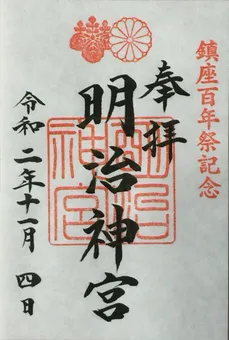 鎮座百年祭記念
奉拝
明治神宮
令和二年十一月四日
明治
神宮